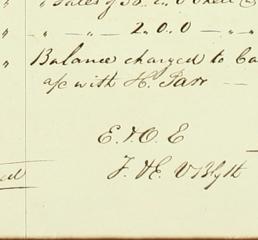 " " Sales of
" — " — 2.0.0 — " — "
" Balance charged to
a/c with H. Parr —
E. & O. E
F. & E. V Blyth